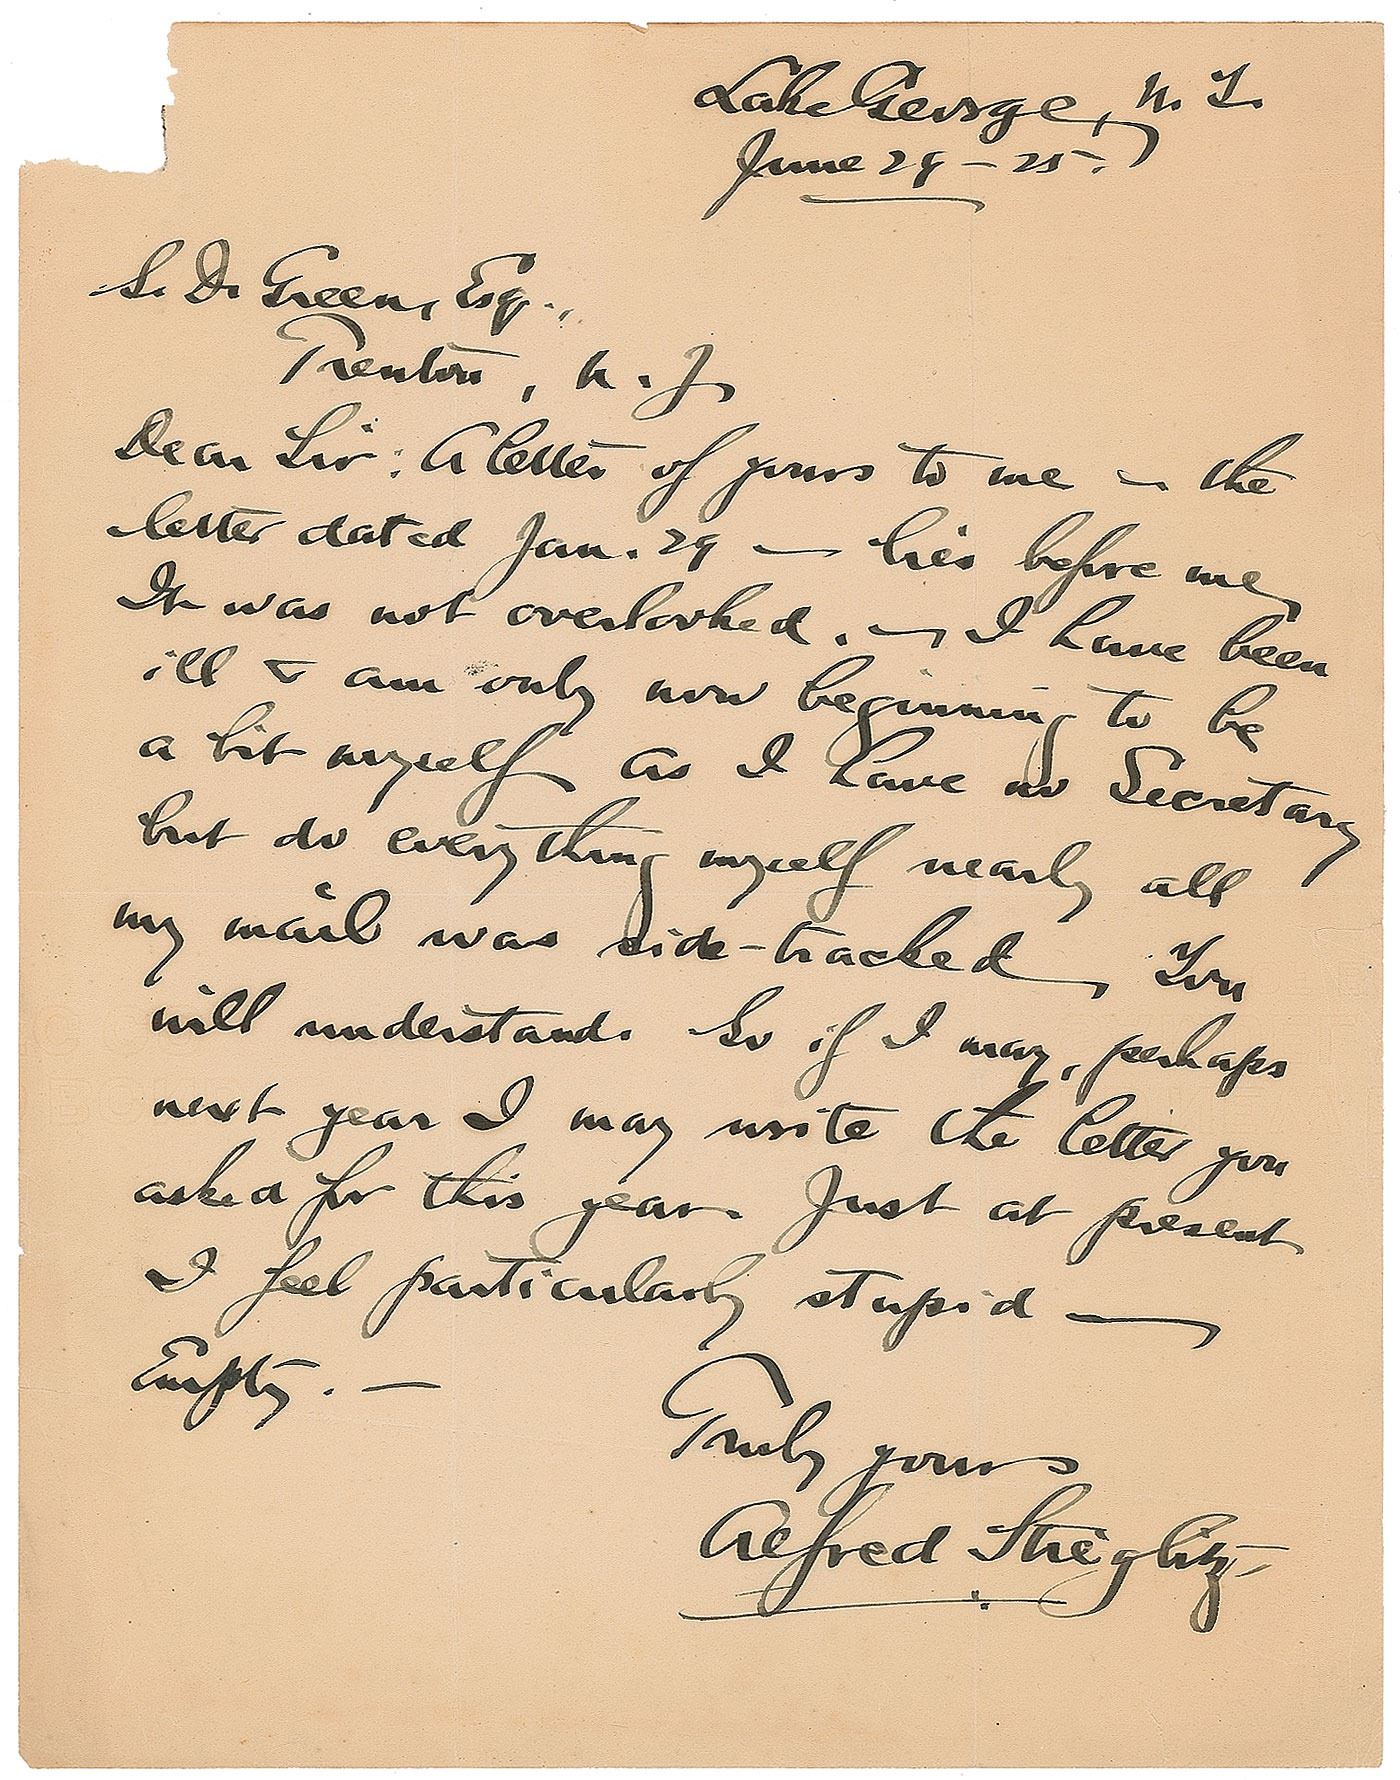 Lake George, N. Y.
June 29 – 25.
S. D. Green, Esq.,
Trenton, N. J.
Dear Sir: A letter of yours to me — the
letter dated Jan. 29 — lies before me,
It was not overlooked. — I have been
ill & am only now beginning to be
a bit myself. As I have no Secretary
but do everything myself nearly all
my mail was side-tracked. You
will understand. So if I may, perhaps
next year I may write the letter you
asked for this year. Just at present
I feel particularly stupid —
Empty. —
Truly yours
Alfred Stieglitz